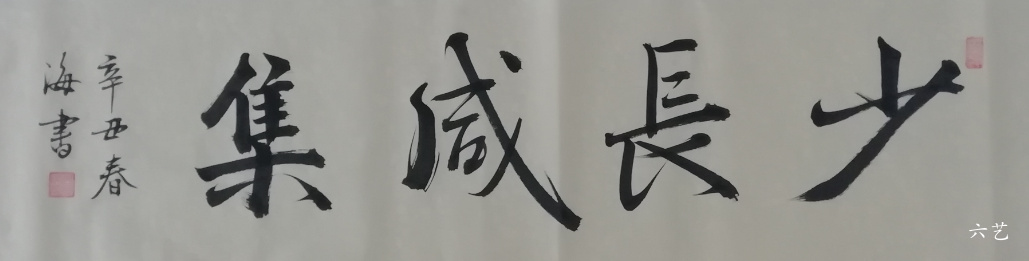 少長咸集
辛丑春
海書
六艺